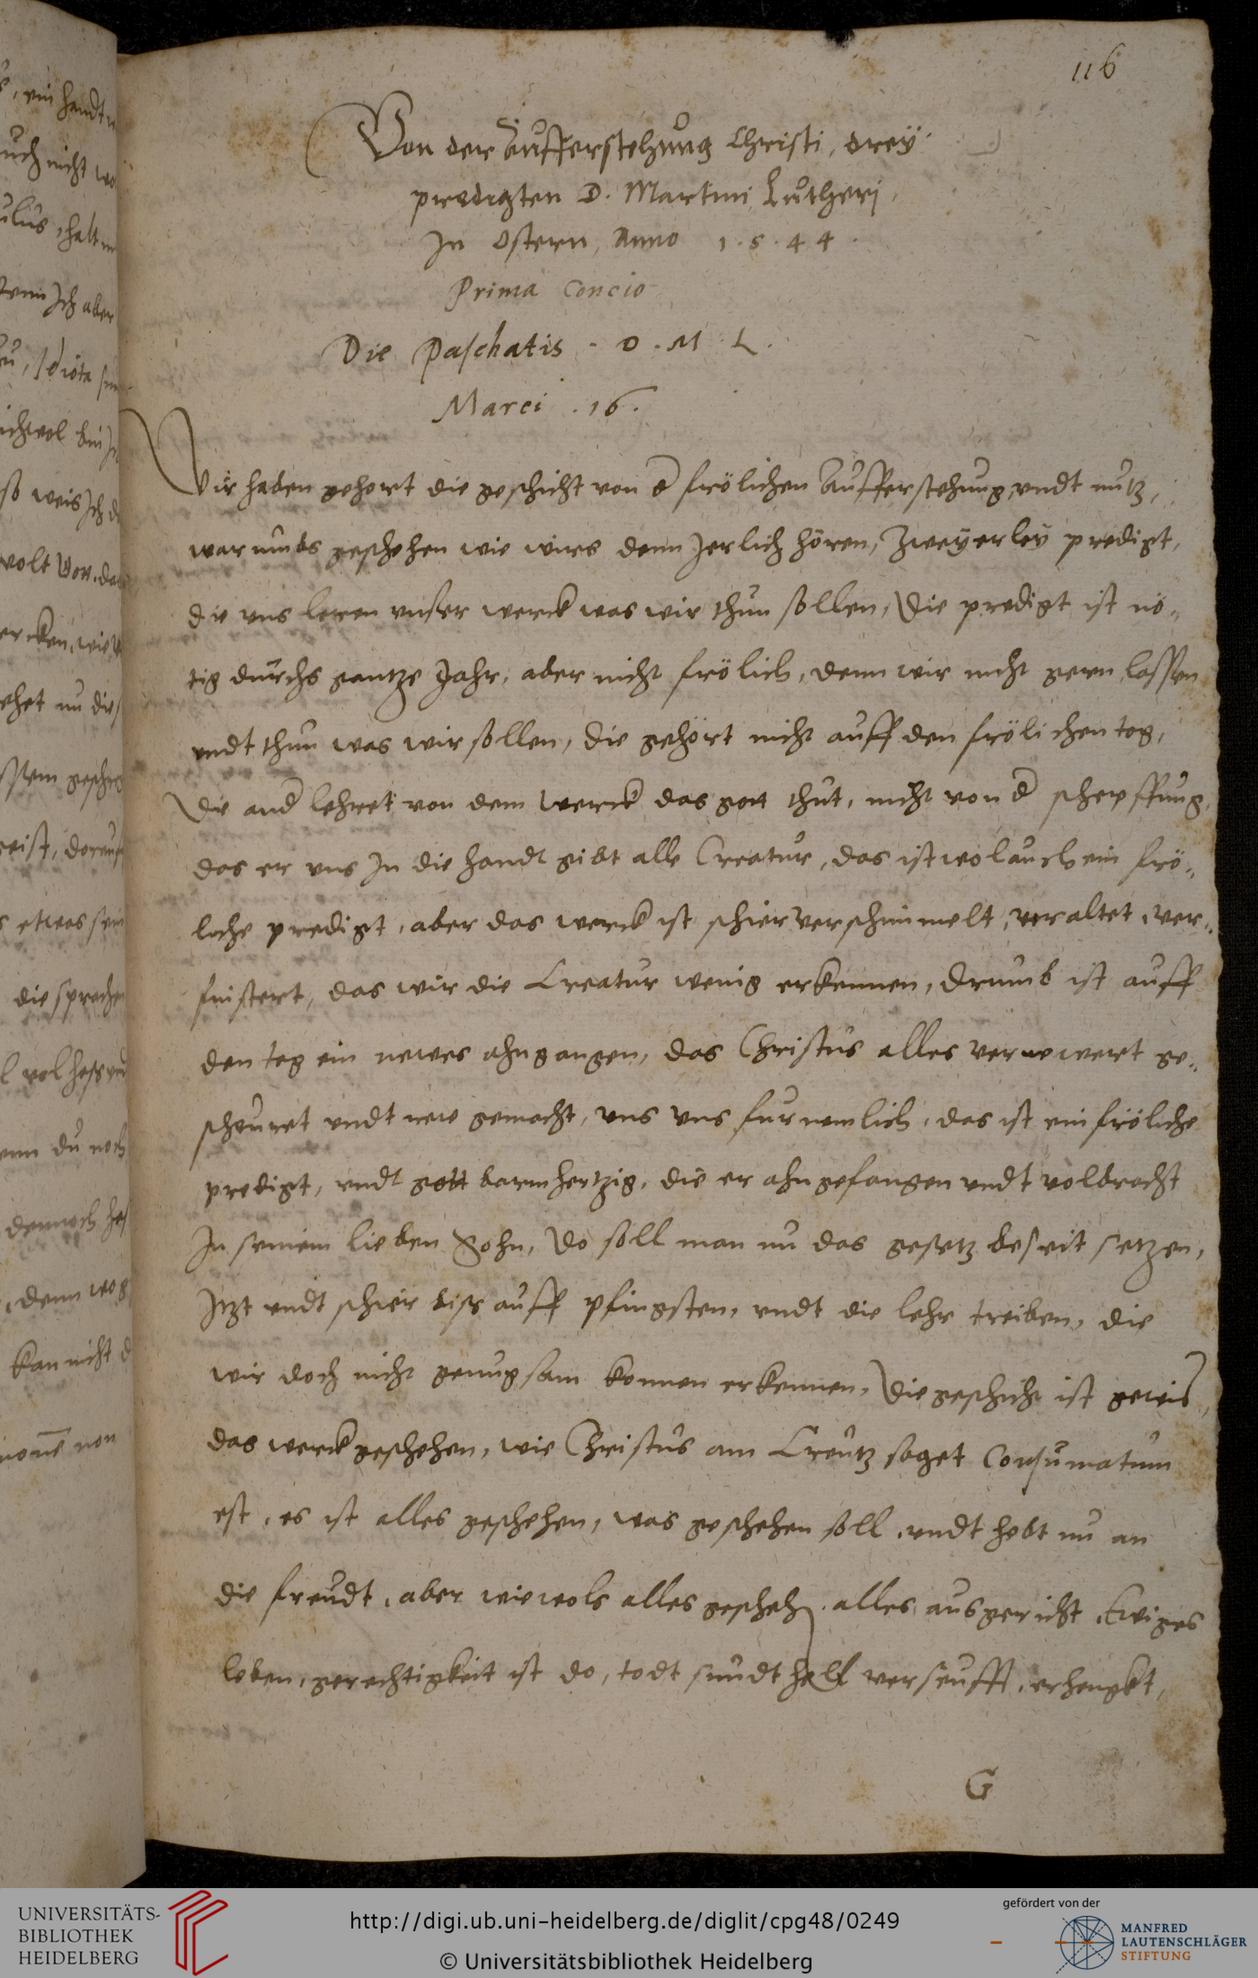 116
Von der Aufferstehung Christi, drey
predigten D. Martini Lutheri,
In Ostern, Anno 1.5.44.
Prima Concio
Die Paschatis . D . M . L .
Marci .16.
Wir haben gehort die geschicht von d frölichen Aufferstehung, undt nutz,
warumbs geschehen wie wirs denn Jerlich hören, Zweyerley predigt,
die uns leren unser werck was wir thun sollen, Die predigt ist nö„
tig durchs gantze Jahr, aber nicht frölich, denn wir nicht gern lassen
undt thun was wir sollen, die gehört nicht auff den frölichen tag,
Die and lehret von dem werck das gott thut, nicht von d schepffung,
das er uns In die handt gibt alle Creatur, das ist wol auch ein frö„
liche predigt, aber das werck ist schier verschimmelt, veraltet, ver„
finstert, das wir die Creatur wenig erkennen, drumb ist auff
den tag ein newes ahngangen, das Christus alles vernewert ge„
scheuret undt new gemacht, uns uns furnemlich, das ist ein fröliche
predigt, undt gott barmhertzig, die er ahngefangen undt volbracht
In seinem lieben Sohn, Do soll man nu das gesetz beseit setzen,
Itzt undt schier biss auff pfingsten, undt die lehr treiben, die
wir doch nicht genugsam konnen erkennen, Die geschicht ist gewis,
das werck geschehen, wie Christus am Creutz saget Consumatum
est, es ist alles geschehen, was geschehen soll, undt hebt nu an
die freudt, aber wiewols alles gescheh, alles ausgericht, Ewiges
leben, gerechtigkeit ist do, todt sundt hell verseufft, erhengkt,
G
, ein handt
uch nicht
ulus, halt
wenn Ich aber
Idiota
ichwol bin
so weis Ich
volt
ercken, wie
ehet nu die
geschr
geist, dorauf
etwas sein
die sprachen
wol hass
wenn du noch
dennoch
, denn wo
kan nicht
non
UNIVERSITÄTS-
BIBLIOTHEK
HEIDELBERG
http://digi.ub.uni-heidelberg.de/diglit/cpg48/0249
© Universitätsbibliothek Heidelberg
gefördert von der
MANFRED
LAUTENSCHLÄGER
STIFTUNG